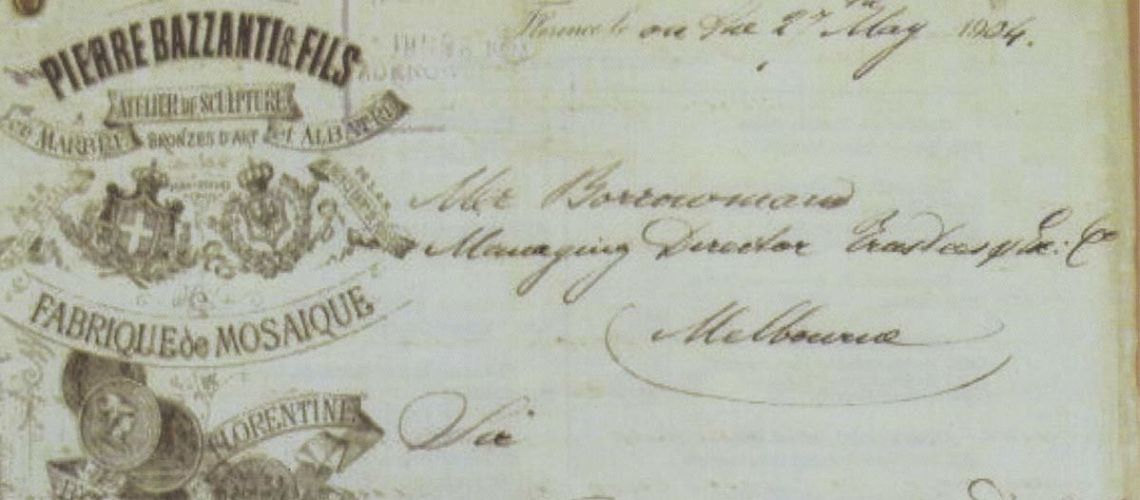 PIERRE BAZZANTI & FILS
ATELIER DE SCULPTURE
MARBRE BRONZES D'ART ET ALBATRE
FABRIQUE de MOSAIQUE
FLORENTINE
Florence le on the 27th May 1904.
Mr Borrowman
Managing Director Trustees & Ex: Co
Melbourne
Sir